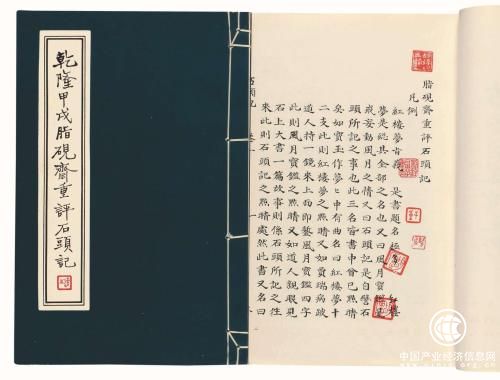 乾隆甲戌脂硯齋重評石頭記
脂硯齋重評石頭記
凡例
紅樓夢旨義 是書題名極
夢是總其全部之名也又曰風月寶鑑是
戒妄動風月之情又曰石頭記是自譬石
頭所記之事也此三名皆書中曾已點睛
矣如寶玉作夢夢中有曲名曰紅樓夢十
二支此則紅樓夢之點睛又如賈瑞病跛
道人持一鏡來上面即鏨風月寶鑑四字
此則風月寶鑑之點睛又如道人親眼見
石上大書一篇故事則係石頭所記之往
來此則石頭記之點睛處然此書又名曰
中国产业经济信息网